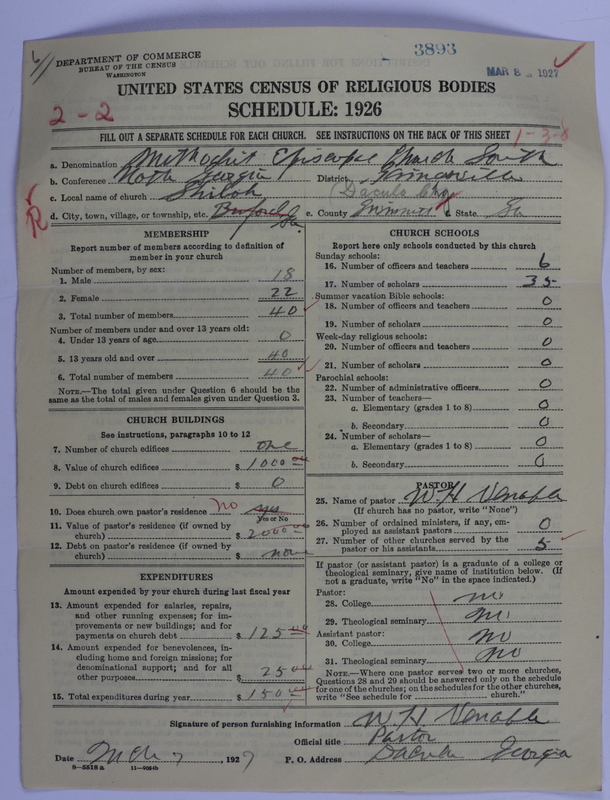 3893
MAR 8 1927
DEPARTMENT OF COMMERCE
BUREAU OF THE CENSUS
WASHINGTON
UNITED STATES CENSUS OF RELIGIOUS BODIES
SCHEDULE: 1926
2-2
FILL OUT A SEPARATE SCHEDULE FOR EACH CHURCH. SEE INSTRUCTIONS ON THE BACK OF THIS SHEET
1-3-8
a. Denomination Methodist Episcopal Church South
b. Conference North Georgia District Gainesville
c. Local name of church Shiloh (Dacula Chg
R
d. City, town, village, or township, etc. Buford Ga e. County Gwinnett State Ga
MEMBERSHIP
Report number of members according to definition of
member in your church
Number of members, by sex:
1. Male 18
2. Female 22
3. Total number of members 40
Number of members under and over 13 years old:
4. Under 13 years of age 0
5. 13 years old and over 40
6. Total number of members 40
NOTE.—The total given under Question 6 should be
same as the total of males and females given under Question 3.
CHURCH BUILDINGS
See instructions, paragraphs 10 to 12
7. Number of church edifices one
8. Value of church edifices $ 1000 00
9. Debt on church edifices $ 0
10. Does church own pastor's residence no yes
Yes or No
11. Value of pastor's residence (if owned by
church) $ 2000 00
12. Debt on pastor's residence (if owned by
church) $ none
EXPENDITURES
Amount expended by your church during last fiscal year
13. Amount expended for salaries, repairs,
and other running expenses; for im-
provements or new buildings; and for
payments on church debt $ 125 00
14. Amount expended for benevolences, in-
cluding home and foreign missions; for
denominational support; and for all
other purposes $ 25 00
15. Total expenditures during year $ 150 00
CHURCH SCHOOLS
Report here only schools conducted by this church
Sunday schools:
16. Number of officers and teachers 6
17. Number of scholars 35
Summer vacation Bible schools:
18. Number of officers and teachers 0
19. Number of scholars 0
Week-day religious schools:
20. Number of officers and teachers 0
21. Number of scholars 0
Parochial schools:
22. Number of administrative officers 0
23. Number of teachers—
a. Elementary (grades 1 to 8) 0
b. Secondary 0
24. Number of scholars—
a. Elementary (grades 1 to 8) 0
b. Secondary 0
PASTOR
25. Name of pastor W. H. Venable
(If church has no pastor, write "None")
26. Number of ordained ministers, if any, em-
ployed as assistant pastors 0
27. Number of other churches served by the
pastor or his assistants 5
If pastor (or assistant pastor) is a graduate of a college or
theological seminary, give name of institution below. (If
not a graduate, write "No" in the space indicated.)
Pastor:
28. College no
29. Theological seminary no
Assistant pastor:
30. College no
31. Theological seminary no
NOTE.—Where one pastor serves two or more churches,
Questions 28 and 29 should be answered only on the schedule
for one of the churches; on the schedules for the other churches,
write "See schedule for church."
Signature of person furnishing information W H Venable
Official title Pastor
Date Mch 7, 1927 P. O. Address Dacula Georgia
8—5518 a 11—9054b